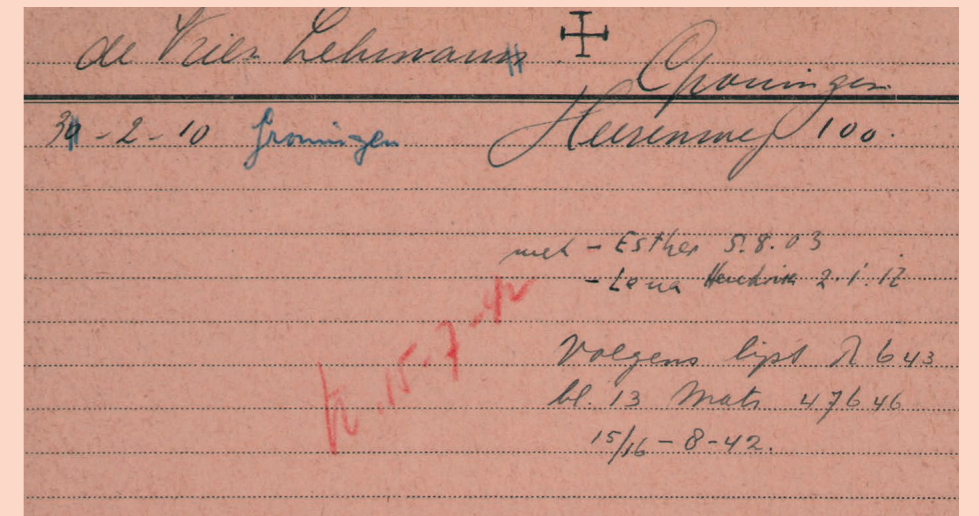 de Vries Lehmann
Groningen
-2-10 Groningen
Heerenweg 100.
met - Esther 5.8.03
- Lena Hendrika 2.1.12
tr. 15-7-42
Volgens lijst 643
bl. 13 Mats 47646
15/16-8-42.